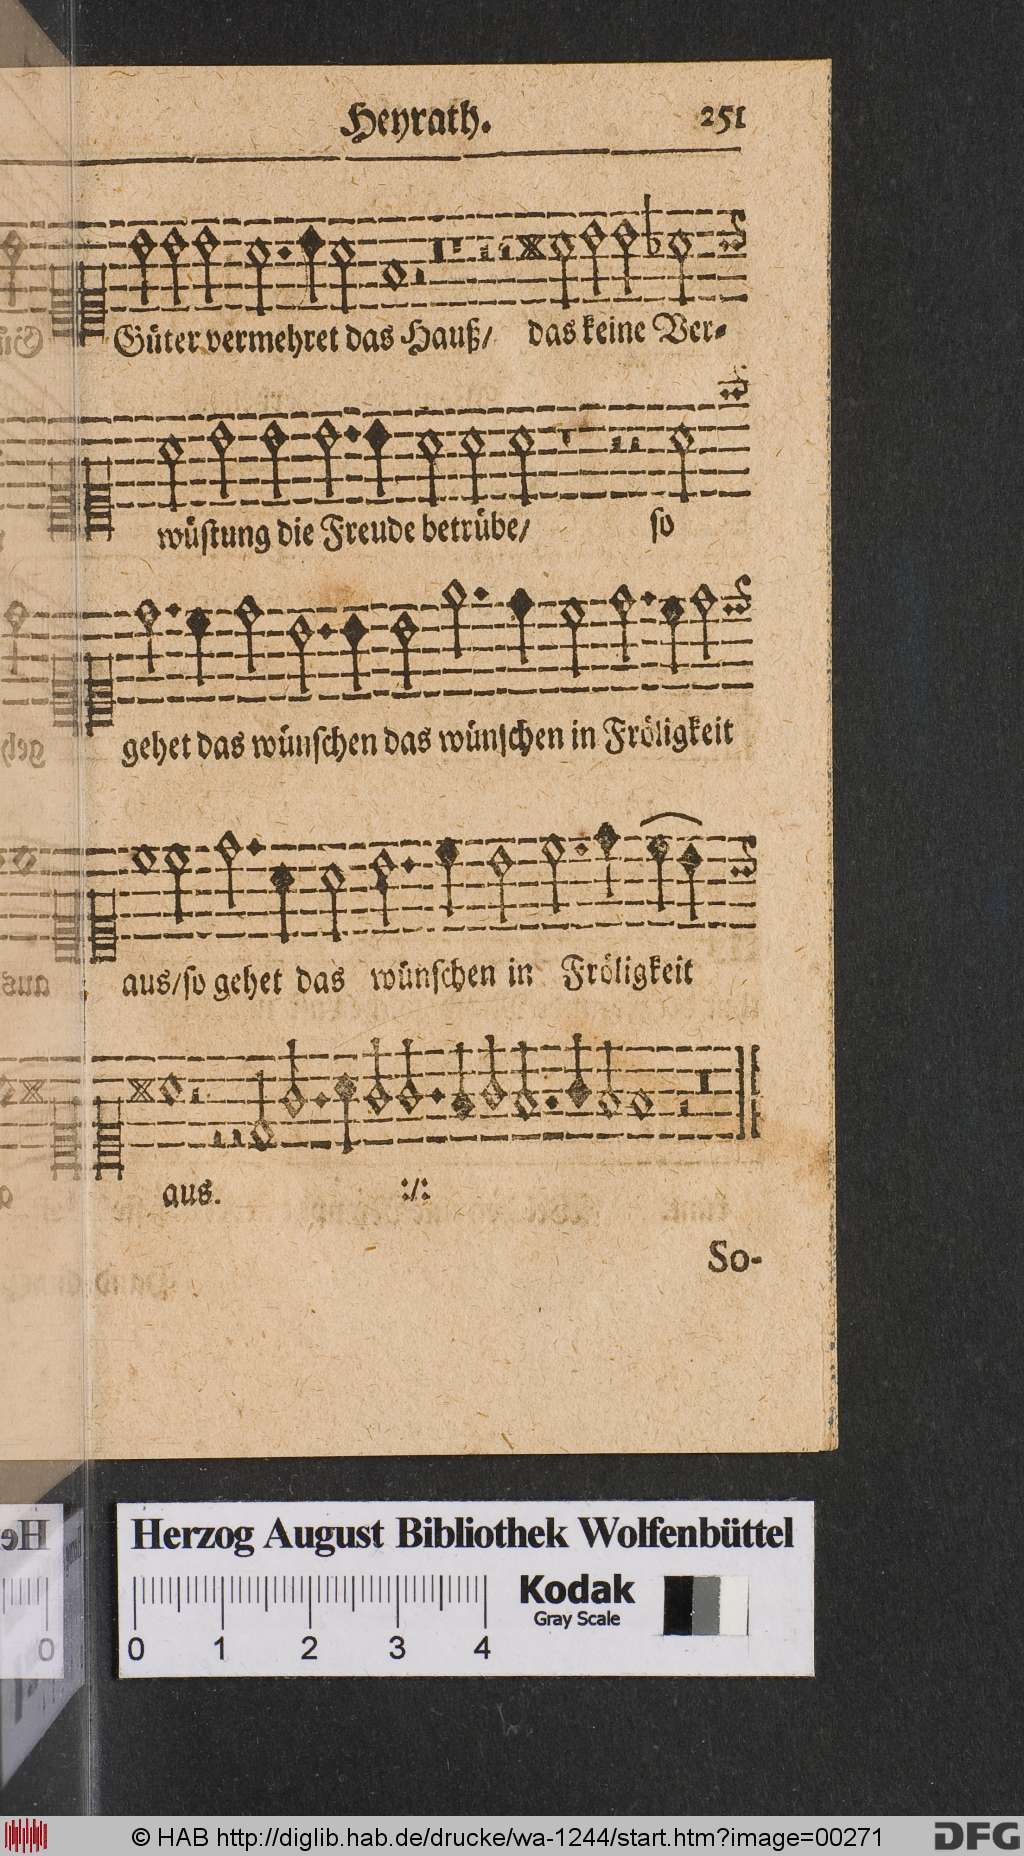 Heyrath. 251
Güter vermehret das Hauß/ das keine Ver-
wüstung die Freude betrübe/ so
gehet das wünschen das wünschen in Fröligkeit
aus/so gehet das wünschen in Fröligkeit
aus. :/:
So-
Herzog August Bibliothek Wolfenbüttel
Kodak
Gray Scale
0 1 2 3 4
© HAB http://diglib.hab.de/drucke/wa-1244/start.htm?image=00271
DFG